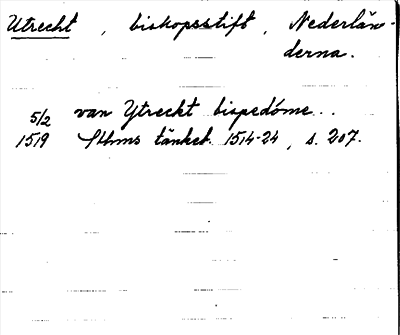 Utrecht, biskopsstift, Nederlän-
derna.
5/2 van Ytreckt bispedóme..
1519 Sthms tänkeb. 1514-24, s. 207.